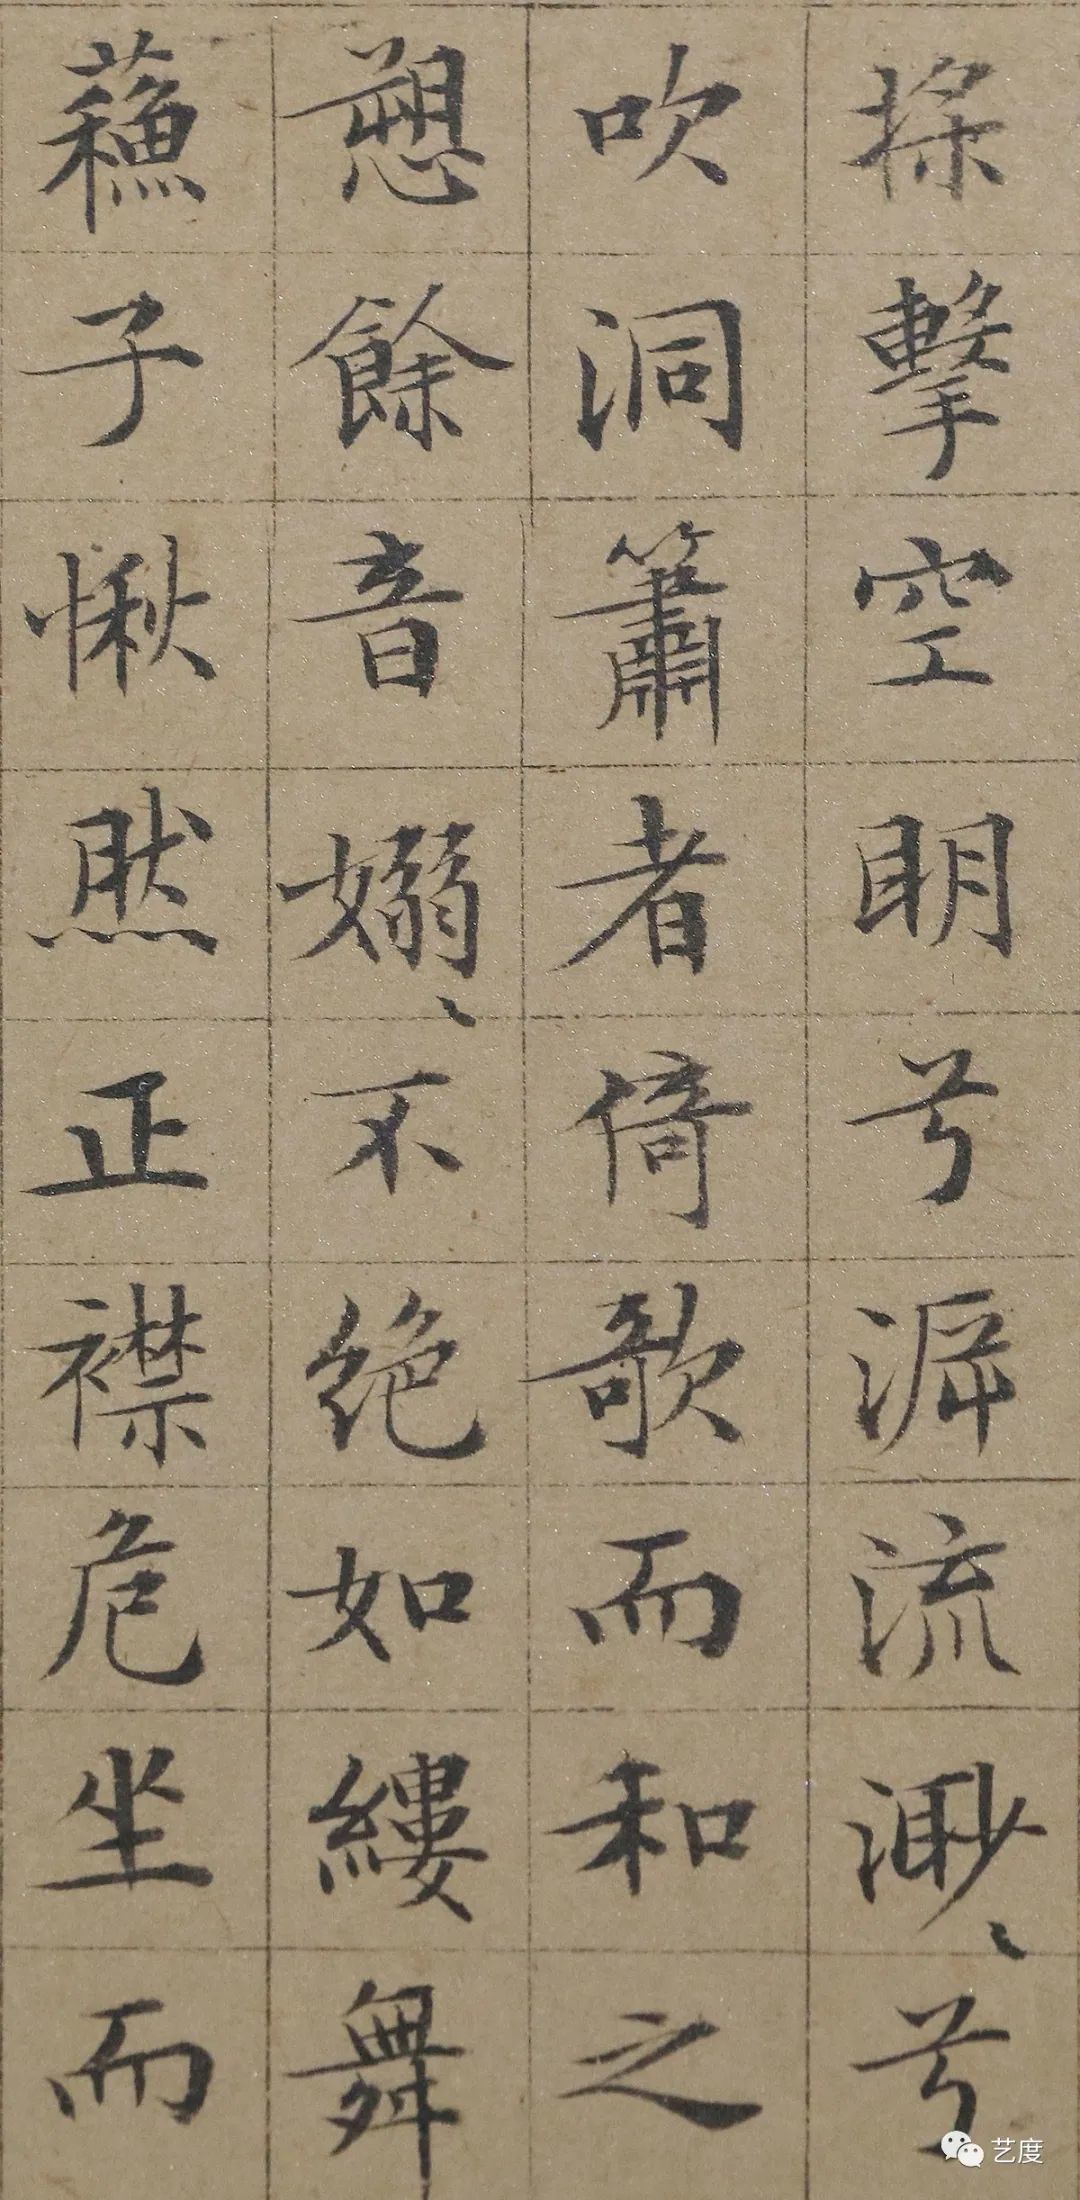 擊空明兮泝流渺〻兮
吹洞簫者倚歌而和之
愬餘音嫋〻不絶如縷舞
蘓子愀然正襟危坐而
艺度